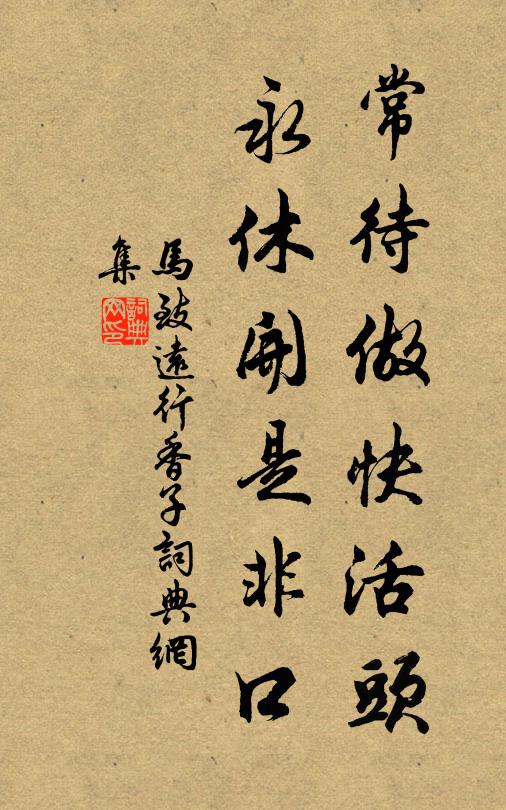 常待做快活頭
永休開是非口
馬致遠行香子詞典網
集
詞典
網印